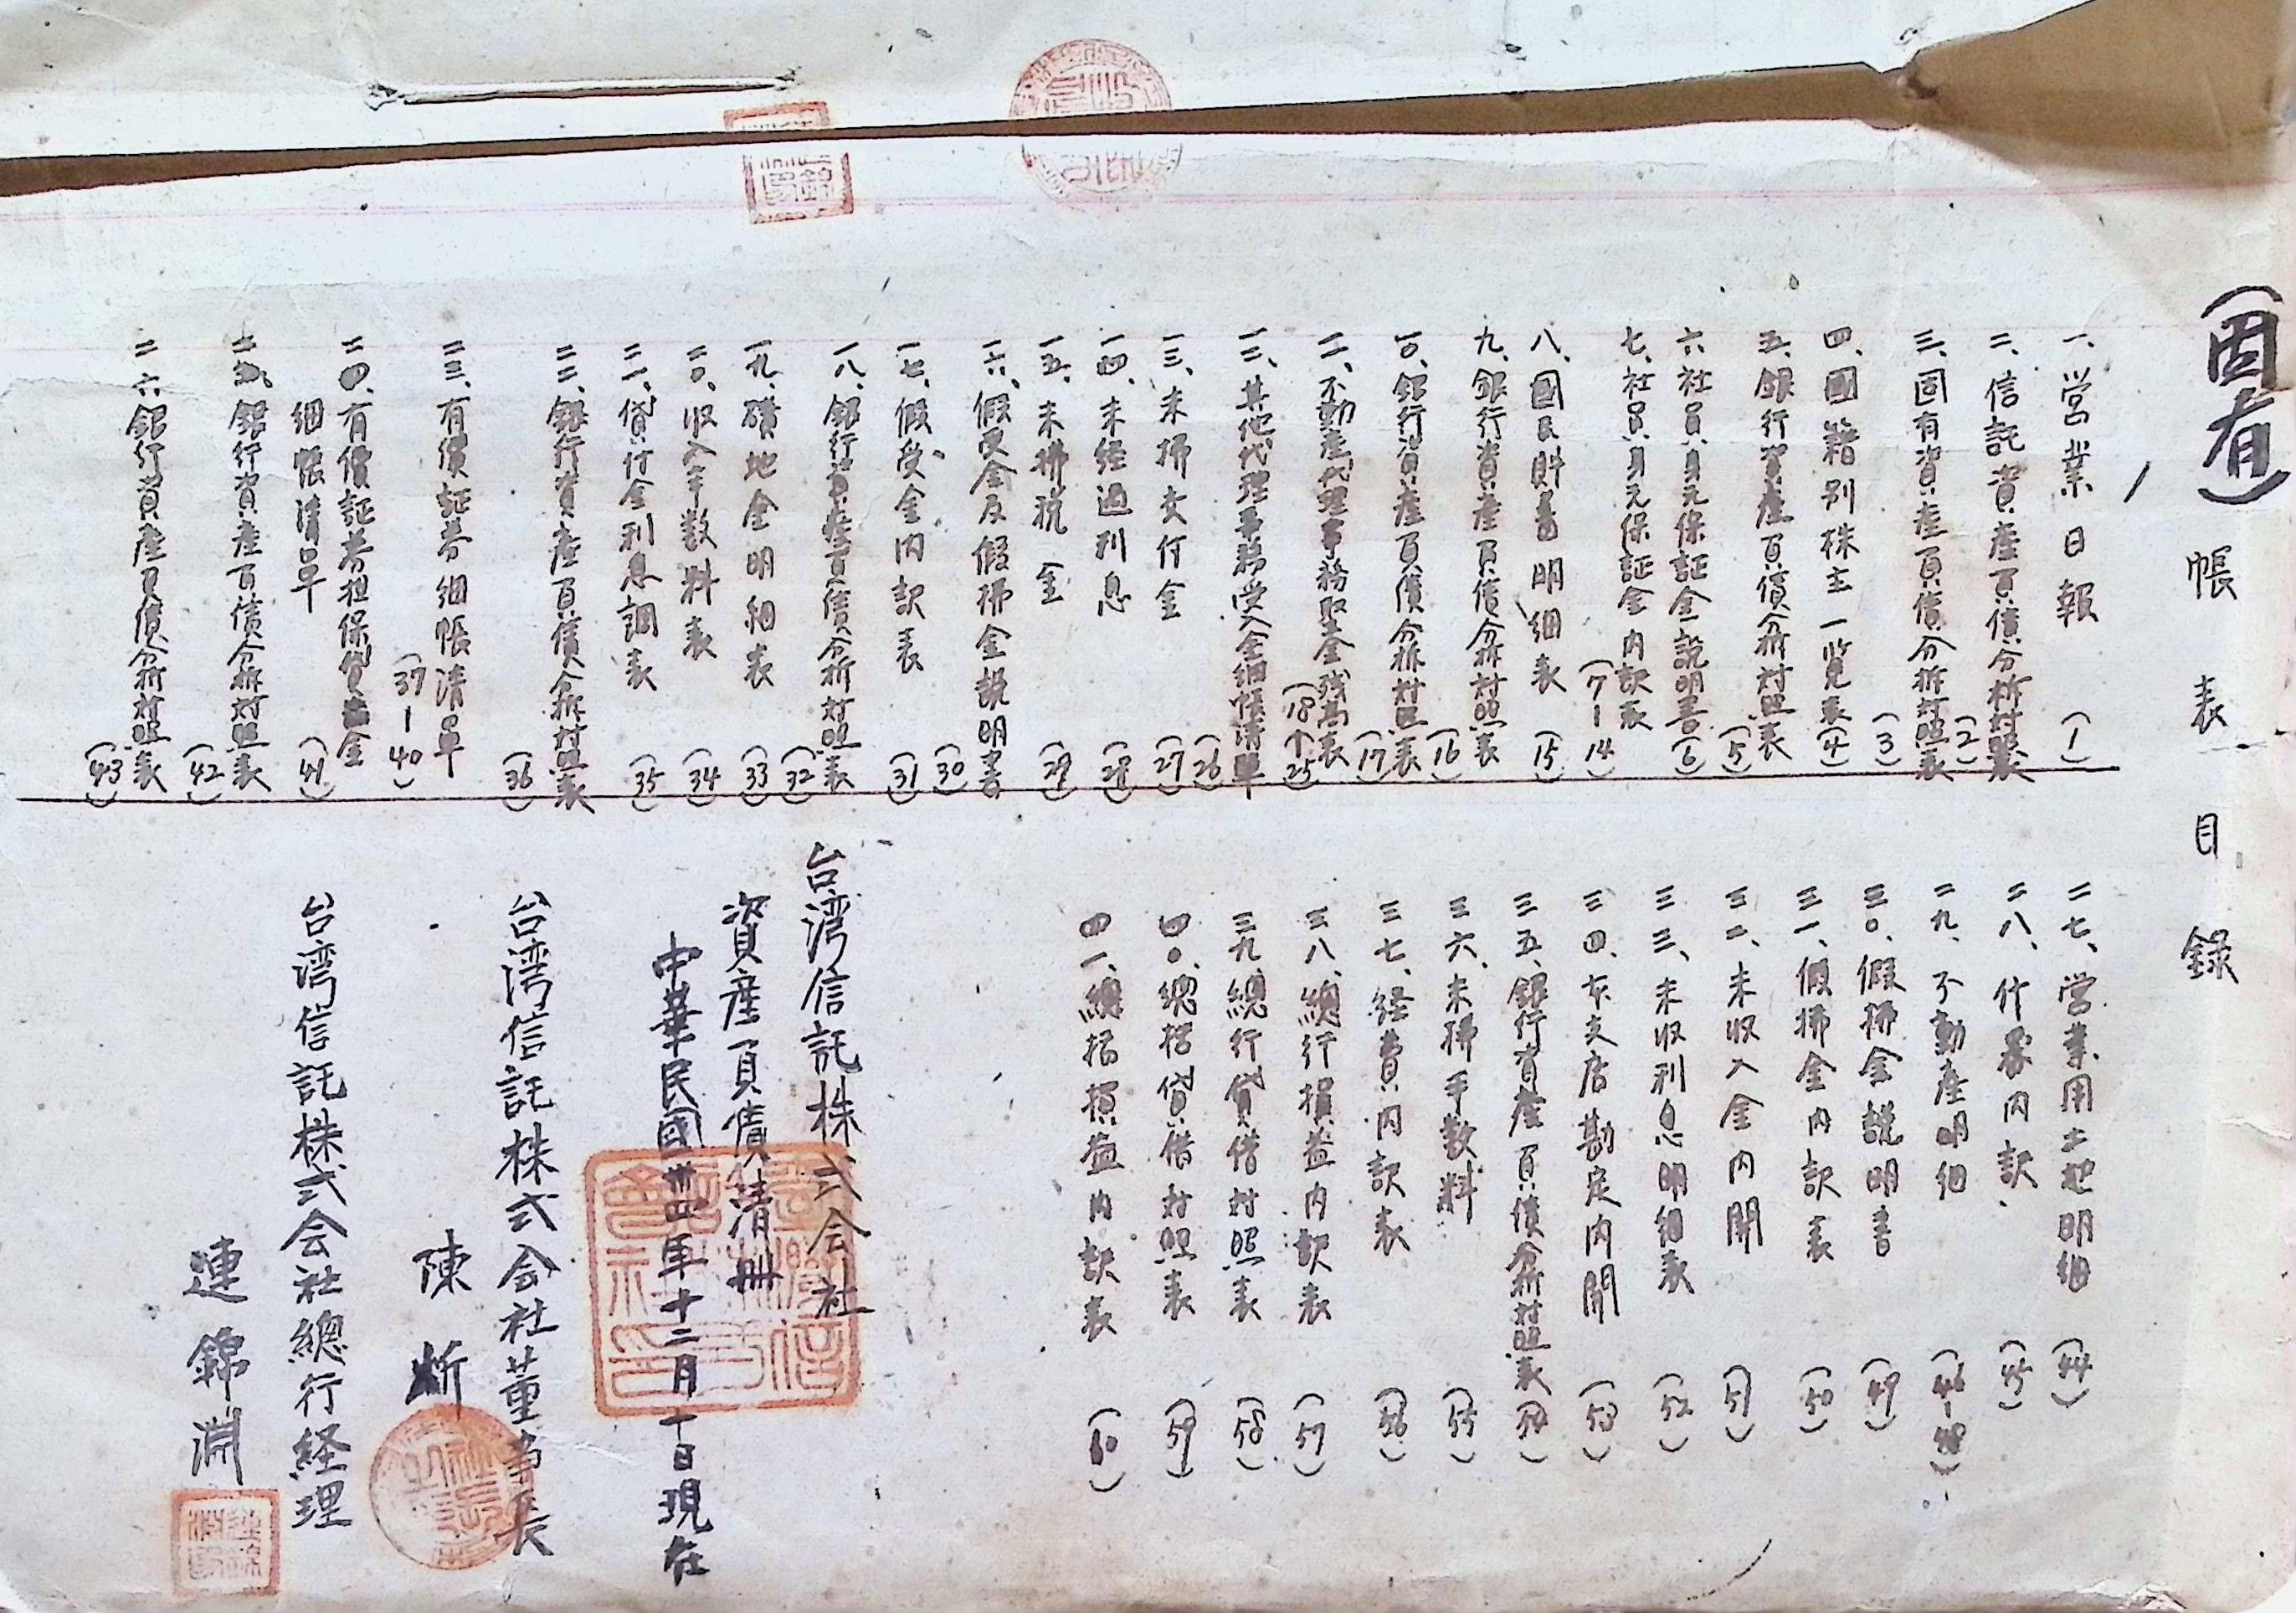 (固有)帳表目録
一、営業日報 (1)
二、信託資産負債分析対照表 (2)
三、固有資産負債分析対照表 (3)
四、國籍別株主一覧表 (4)
五、銀行資産負債分析対照表 (5)
六、社員身元保証金説明書 (6)
七、社員身元保証金内訳表 (7-14)
八、國民貯蓄明細表 (15)
九、銀行資産負債分析対照表 (16)
一〇、銀行資産負債分析対照表 (17)
一一、不動産代理事務取立金残高表 (18-25)
一二、其他代理事務受入金細帳清單 (26)
一三、未拂交付金 (27)
一四、未経過利息 (28)
一五、未拂税金 (29)
一六、假受金及假拂金説明書 (30)
一七、假受金内訳表 (31)
一八、銀行資産負債分析対照表 (32)
一九、磺地金明細表 (33)
二〇、收入手数料表 (34)
二一、貸付金利息調表 (35)
二二、銀行資産負債分析対照表 (36)
二三、有價証券細帳清單 (37-40)
二四、有價証券担保貸金
細帳清單 (41)
二五、銀行資産負債分析対照表 (42)
二六、銀行資産負債分析対照表 (43)
二七、営業用土地明細 (44)
二八、什器内訳 (45)
二九、不動産明細 (46-48)
三〇、假拂金説明書 (49)
三一、假拂金内訳表 (50)
三二、未收入金内開 (51)
三三、未收利息明細表 (52)
三四、本支店勘定内開 (53)
三五、銀行資産負債分析対照表 (54)
三六、未拂手数料 (55)
三七、経費内訳表 (56)
三八、總行損益内訳表 (57)
三九、總行貸借対照表 (58)
四〇、總括貸借対照表 (59)
四一、總括損益内訳表 (60)
台湾信託株式会社
資産負債清冊
中華民國卅四年十二月十日現在
台湾信託株式会社董事長
陳炘
台湾信託株式会社總行経理
連錦淵